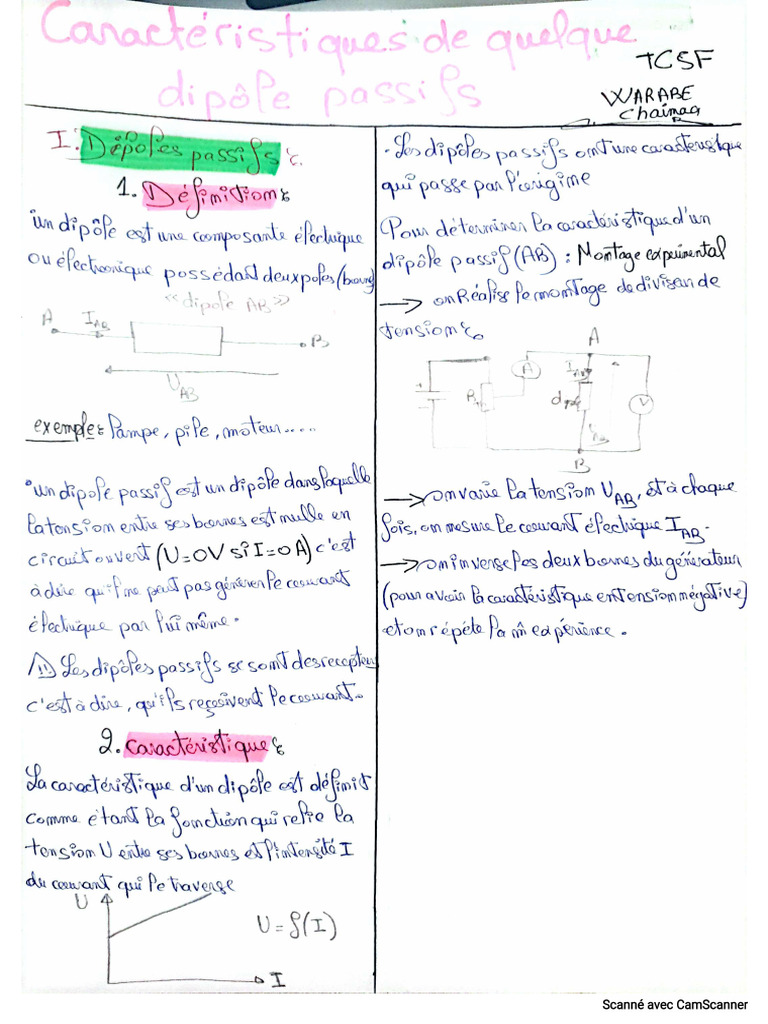 Caractéristiques de quelque
dipôle passifs
TCSF
WARABE
Chaimaa
I. Dépoles passifs :
1. Définition :
un dipôle est une composante électrique
ou électronique possédant deux poles (borns)
<< dipole AB >>
A I_AB B
U_AB
exemple : Lampe, pile, moteur.....
• un dipole passif est un dipôle dans laquelle
la tension entre ses bornes est nulle en
circuit ouvert (U=0V si I=0A) c'est
à dire qu'il ne peut pas générer le courant
électrique par lui même.
⚠ Les dipôles passifs se sont des recepteur
c'est à dire, qu'ils reçoivent le courant.
2. caractéristique :
La caractéristique d'un dipôle est définit
comme étant la fonction qui relie la
tension U entre ses bornes et l'intensité I
du courant qui le traverse
U
U = f(I)
I
• Les dipôles passifs ont une caractéristique
qui passe par l'origime
Pour déterminer la caractéristique d'un
dipôle passif (AB) : Montage expérimental
→ on Réalise le montage de divisan de
tension :
A
A
I_AB
dipole
V
B
→ on varie la tension U_AB, et à chaque
fois, on mesure le courant électrique I_AB.
→ on inverse les deux bornes du générateur
(pour avoir la caractéristique en tension négative)
et on répéte la m̂ expérience.
Scanné avec CamScanner